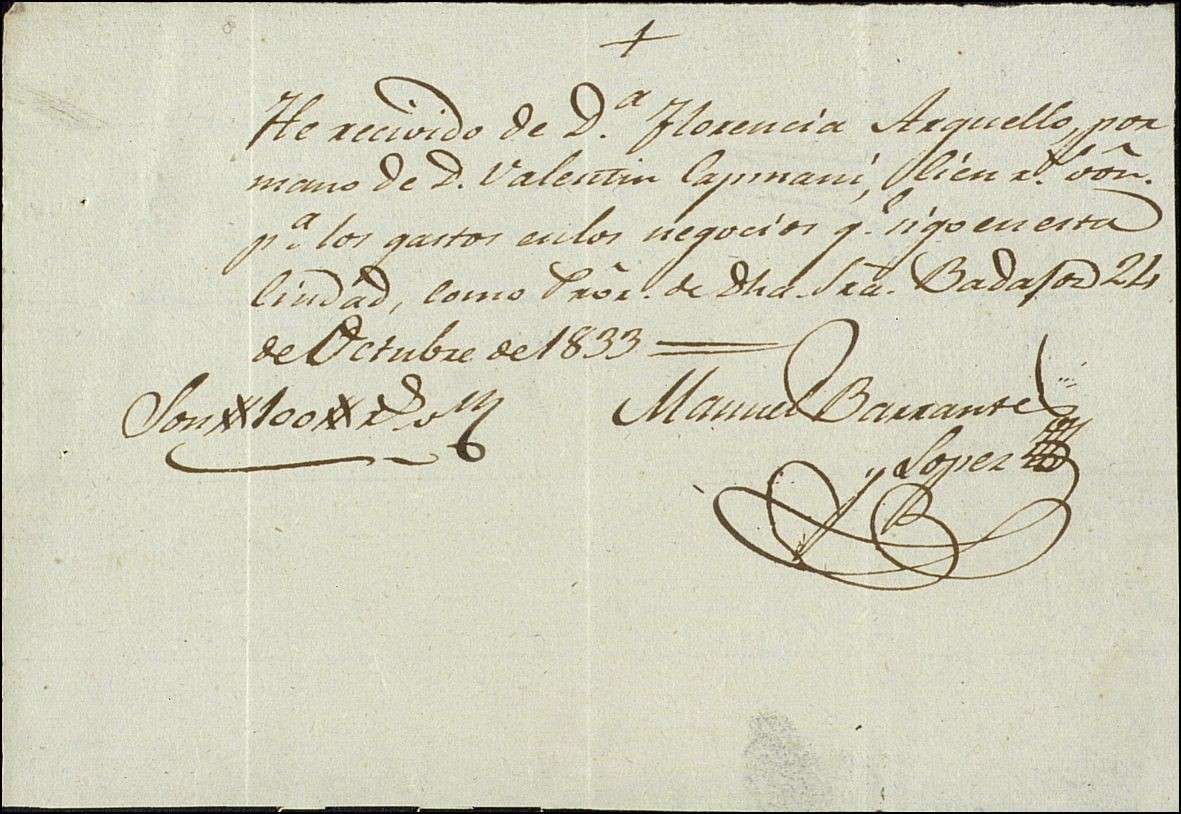 +
He recivido de D.ª Florencia Arguello, por
mano de D. Valentin Capmani, Cien r.ˢ vón.
p.ª los gastos en los negocios q.ᵉ sigo en esta
Ciudad, como Prór. de dha. Sra. Badajoz 24
de Octubre de 1833
Son 100 r.ˢ v
Manuel Barrante
y Lopez